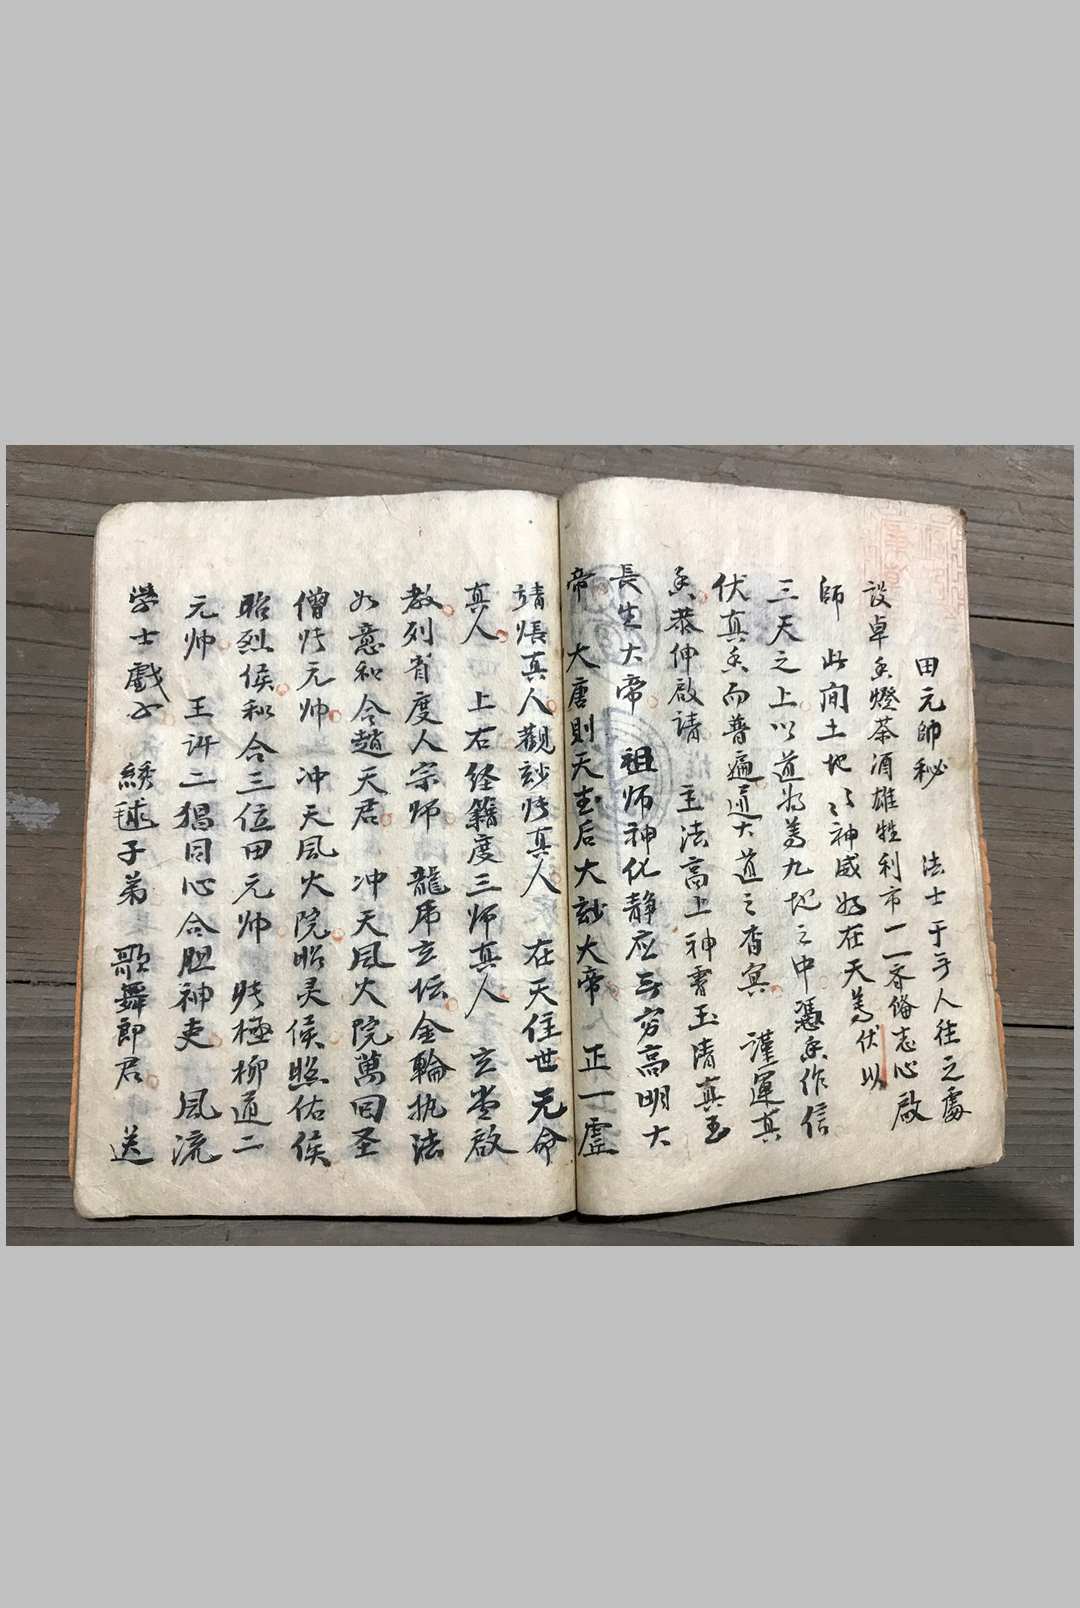 田元帥秘 法士于手人往之處
設卓香燈茶酒雄牲利市一一齊俻志心啟
師 此間土地々神威如在天為伏以
三天之上以道为尊九地之中憑香作信
伏真香而普遍通大道之杳冥 謹運真
香恭伸啟請 主法高上神霄玉清真王
長生大帝 祖师神化静应无穷高明大
帝 大唐則天圭后大玅大帝 正一虛
靖張真人觀玅 真人 在天住世元命
真人 上右经籍度三师真人 立堂啟
教列省度人宗师 龍虎立坛金輪执法
如意和合趙天君 冲天風火院萬回圣
僧 元帅 冲天風火院昭灵侯照佑侯
昭烈侯和合三位田元帅 極柳道二
元帅 王 二猖同心合胆神吏 風流
學士戲 綉毬子弟 歌舞郎君 送